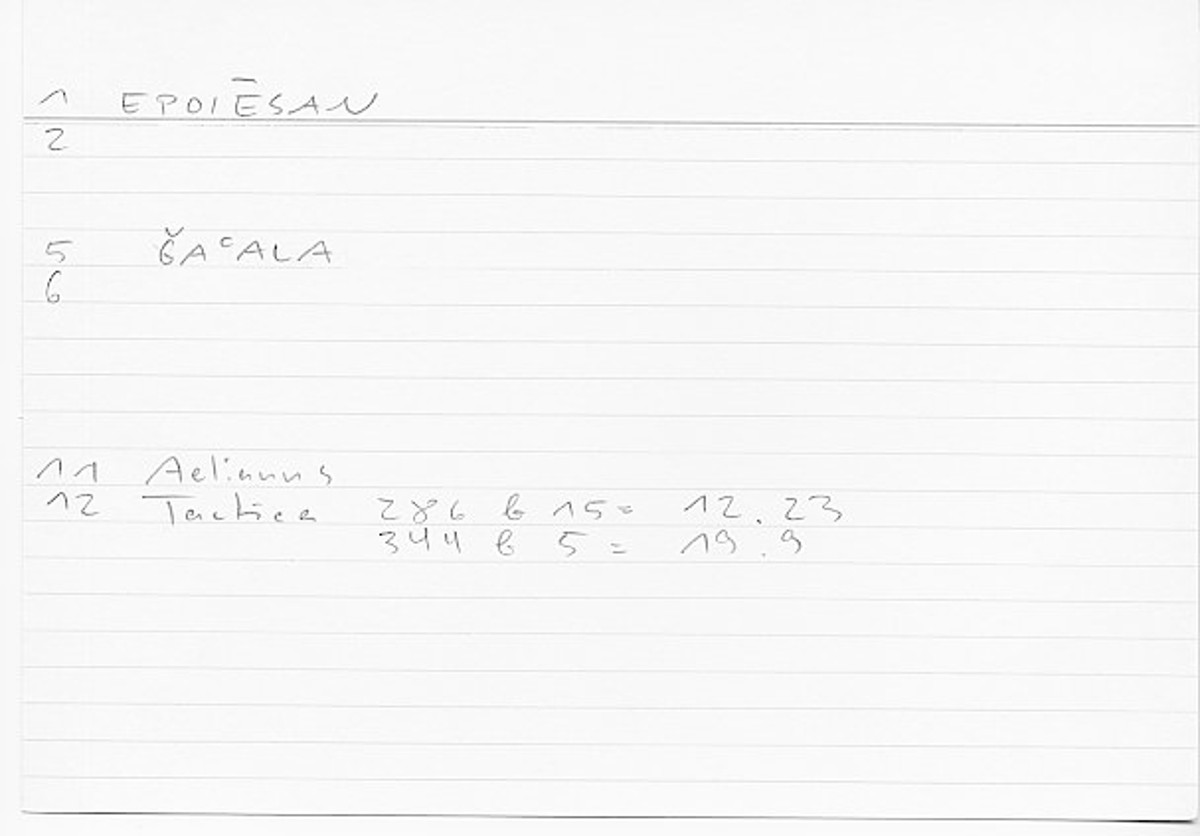 1 EPOIĒSAN
2
5 ǦAᶜALA
6
11 Aelianus
12 Tactica 286 b 15 = 12.23
344 b 5 = 19.9